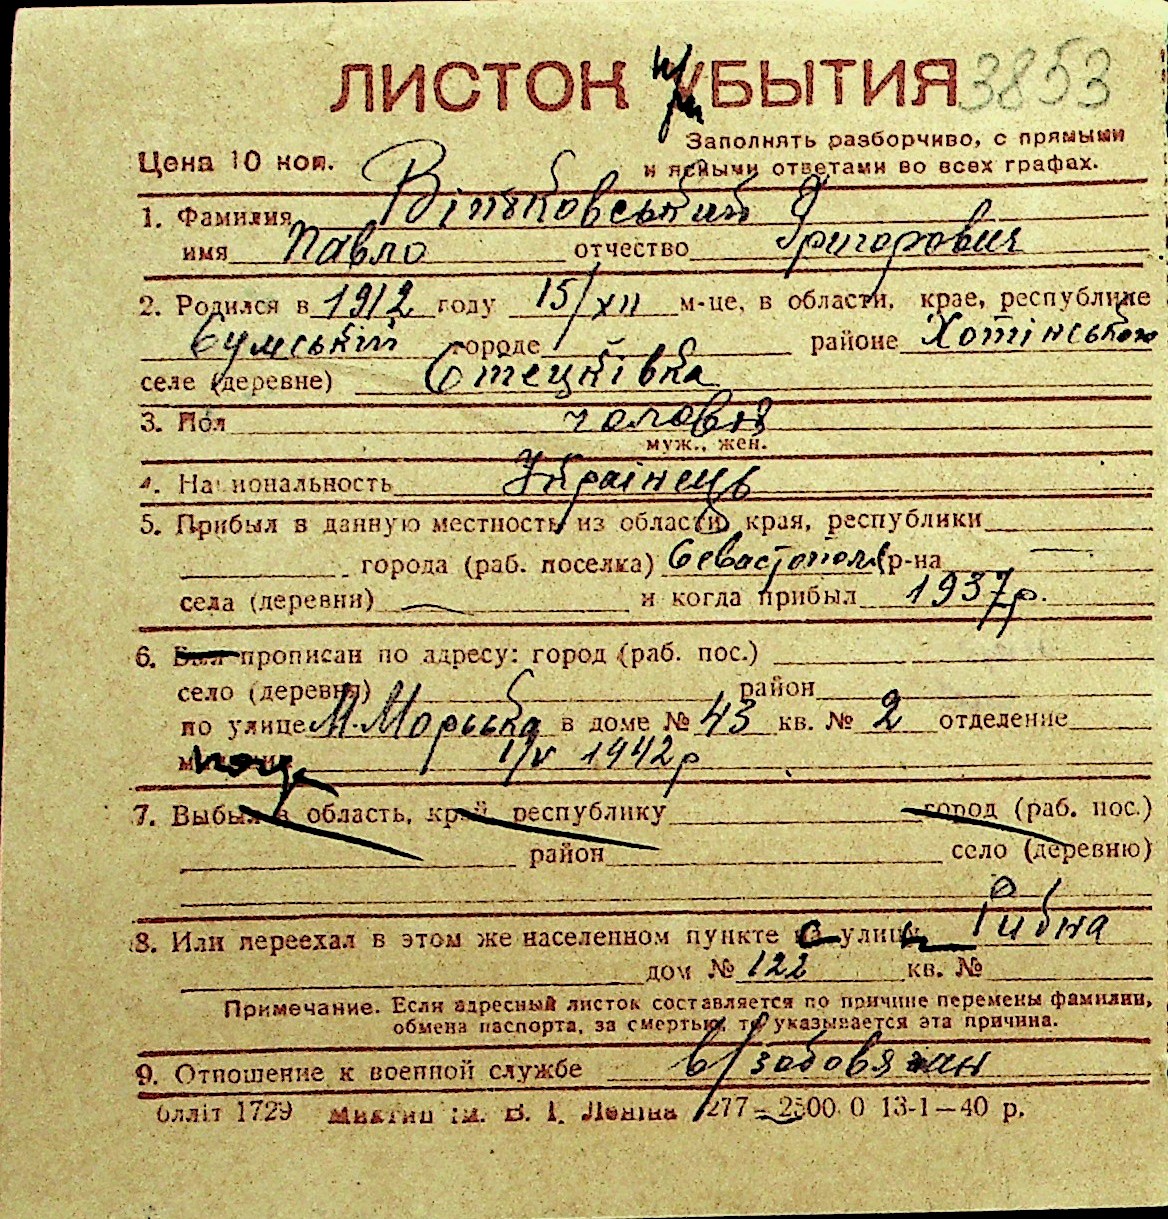 ЛИСТОК при УБЫТИЯ 3853
Заполнять разборчиво, с прямыми
Цена 10 коп. и ясными ответами во всех графах.
1. Фамилия Вітковський
имя Павло отчество Григорович
2. Родился в 1912 году 15/XII м-це, в области, крае, республике
Сумській городе районе Хотінською
селе (деревне) Стецківка
3. Пол чолов
муж., жен.
4. Национальность Українець
5. Прибыл в данную местность из области, края, республики
города (раб. поселка) Севастополя р-на —
села (деревни) — и когда прибыл 1937 р.
6. Был прописан по адресу: город (раб. пос.)
село (деревня) район
по улице М. Морська в доме № 43 кв. № 2 отделение
1/V 1942 р
7. Выбыл в область, край, республику город (раб. пос.)
район село (деревню)
8. Или переехал в этом же населенном пункте с улицы Рибна
дом № 122 кв. №
Примечание. Если адресный листок составляется по причине перемены фамилии,
обмена паспорта, за смертью, то указывается эта причина.
9. Отношение к военной службе в/зобовязан
блліт 1729 В. І. Леніна 277—2500.0 13-1—40 р.